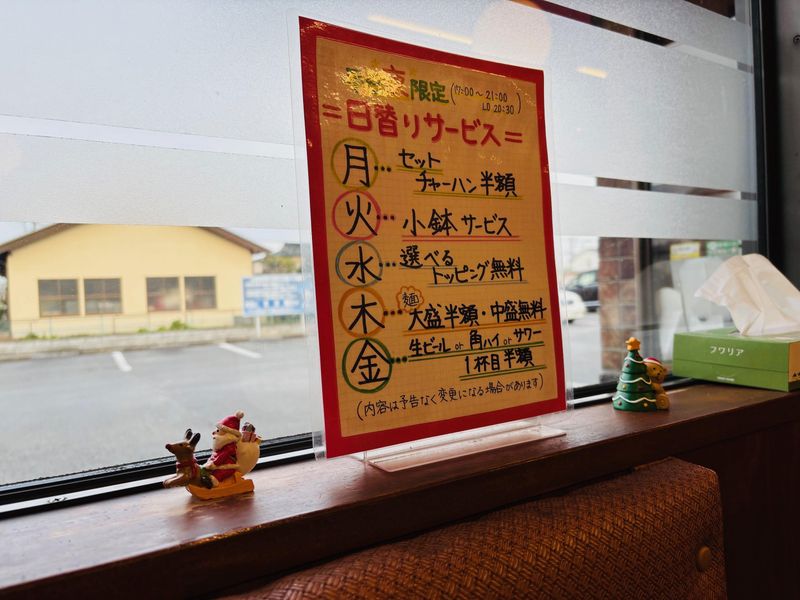 夜限定(17:00～21:00 LO 20:30)
=日替りサービス=
月…セット
チャーハン半額
火…小鉢サービス
水…選べる
トッピング無料
木…麺大盛半額・中盛無料
金…生ビール or 角ハイ or サワー
1杯目半額
(内容は予告なく変更になる場合があります)
フワリア